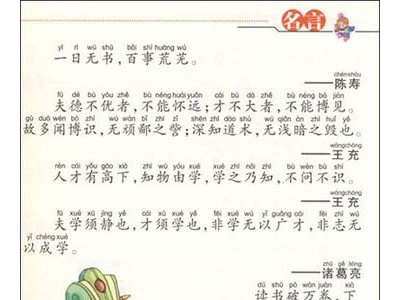 名言
yī rì wú shū bǎi shì huāng wú
一日无书,百事荒芜。
chénshòu
——陈寿
fū dé bù yōu zhě bù néng huái yuǎn cái bù dà zhě bù néng bó jiàn
夫德不优者,不能怀远;才不大者,不能博见。
gù duō wén bó shí wú wán bǐ zhī zǐ shēn zhī dào shù wú qiǎn àn zhī huǐ yě
故多闻博识,无顽鄙之訾;深知道术,无浅暗之毁也。
wángchōng
——王充
rén cái yǒu gāo xià zhī wù yóu xué xué zhī nǎi zhī bù wèn bù shí
人才有高下,知物由学,学之乃知,不问不识。
wángchōng
——王充
fū xué xū jìng yě cái xū xué yě fēi xué wú yǐ guǎng cái fēi zhì wú
夫学须静也,才须学也,非学无以广才,非志无
yǐ chéng xué
以成学。
zhū gě liàng
——诸葛亮
dú shū pò wàn juàn xià
读书破万卷,下